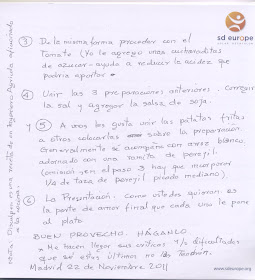 sd europe
③ De la misma forma proceder con el
Tomate (Yo le agrego unas cucharaditas
de azúcar - ayuda a reducir la acidez que
podría aportar.
④ Unir las 3 preparaciones anteriores. Corregir
la sal y agregar la salsa de soja.
y ⑤ A unos les gusta unir las patatas fritas
a otros colocarlas sobre la preparación.
Generalmente se acompaña con arroz blanco,
adornado con una ramita de perejil.
(omición ¡en el paso 3 hay que incorporar
1/2 de taza de perejil picado mediano).
⑥ La Presentación. Como ustedes quieran es
la parte de amor final que cada uno le pone
al plato.
BUEN PROVECHO. HÁGANLO
* Me hacen llegar sus críticas y/o dificultades
que sé estas últimas no las Tendrán.
Madrid 22 de Noviembre 2011
www.sdeurope.org
nota: Disculpen es una receta de un Ingeniero Agrícola aficionado
a la cocina.